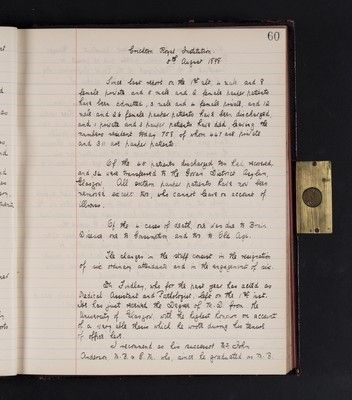 60
Crichton Royal Institution.
8th August 1898
Since last report on the 1st ult. 4 male and 8
female private and 8 male and 2 female pauper patients
have been admitted, 3 male and 4 female private, and 12
male and 26 female pauper patients have been discharged,
and 1 private and 3 pauper patients have died, leaving the
numbers resident today 758, of whom 447 are private
and 311 are pauper patients.
Of the 45 patients discharged ten had recovered,
and 32 were transferred to the Govan District Asylum,
Glasgow. All Govan pauper patients have now been
removed except two, who cannot leave on account of
illness.
Of the 4 cases of death, one was due to Brain
Disease one to Consumption, and two to Old Age.
The changes in the staff consist in the resignation
of six ordinary attendants and in the engagement of six.
Dr. Findlay, who for the past year has acted as
Medical Assistant and Pathologist, left on the 1st inst.
He has just received the Degree of M.D. from the
University of Glasgow, with the highest honour on account
of a very able thesis which he wrote during his tenure
of office here.
I recommend as his successor Mr. John
Anderson M.B. & C.M. who, since he graduated as M.B.